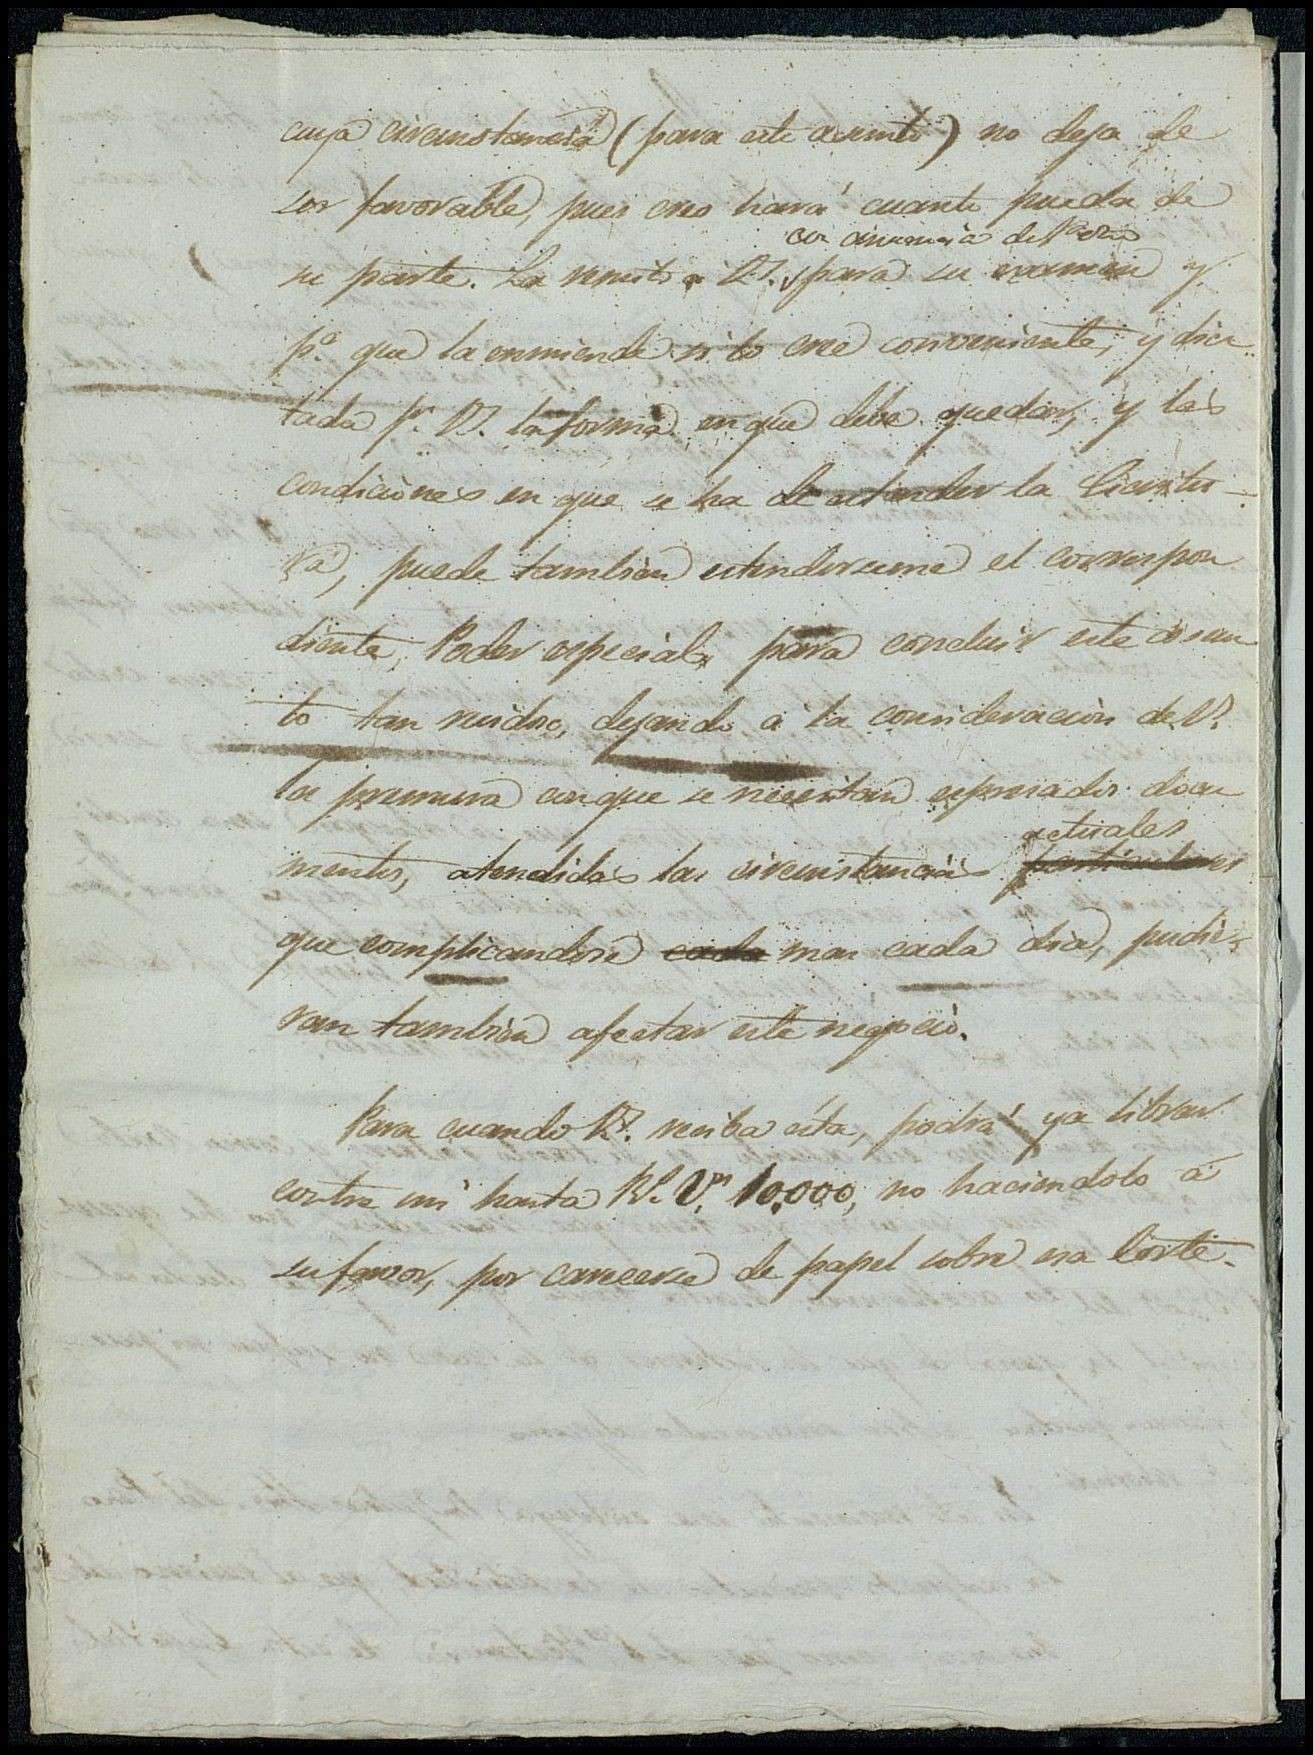 cuya circunstancia (para este asunto) no deja de
ser favorable, pues creo hará cuanto pueda de
con anuencia de
su parte. La remito a V. para su examen y
pª. que la enmiende si lo cree conveniente, y dic
tada pr. V. la forma en que debe quedar, y las
condiciones en que se ha de estender la Escritu-
ra, puede tambien estenderseme el correspon
diente Poder especial para concluir este asun
to tan ruidoso, dejando a la consideración de V.
la premura con que se necesitan espresados docu
actuales
mentos, atendidas las circunstancias particulares
que complicandose cada mas cada dia, pudie-
ran tambien afectar este negocio.
Para cuando V. reciba ésta, podrá ya librar
contra mi hasta Rs. Vn. 10.000, no haciendolo á
su favor, por carecerse de papel sobre esa Corte.